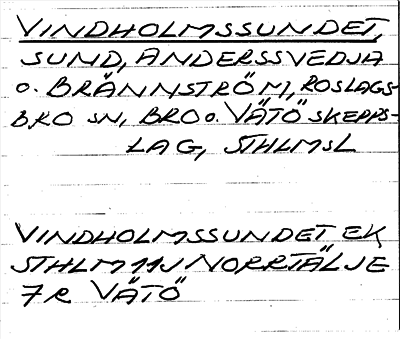 VINDHOLMSSUNDET,
SUND, ANDERSSVEDJA
o. BRÄNNSTRÖM, ROSLAGS-
BRO SN, BRO o. VÄTÖ SKEPPS-
LAG, STHLMSL
VINDHOLMSSUNDET EK
STHLM 11J NORRTÄLJE
7 R VÄTÖ